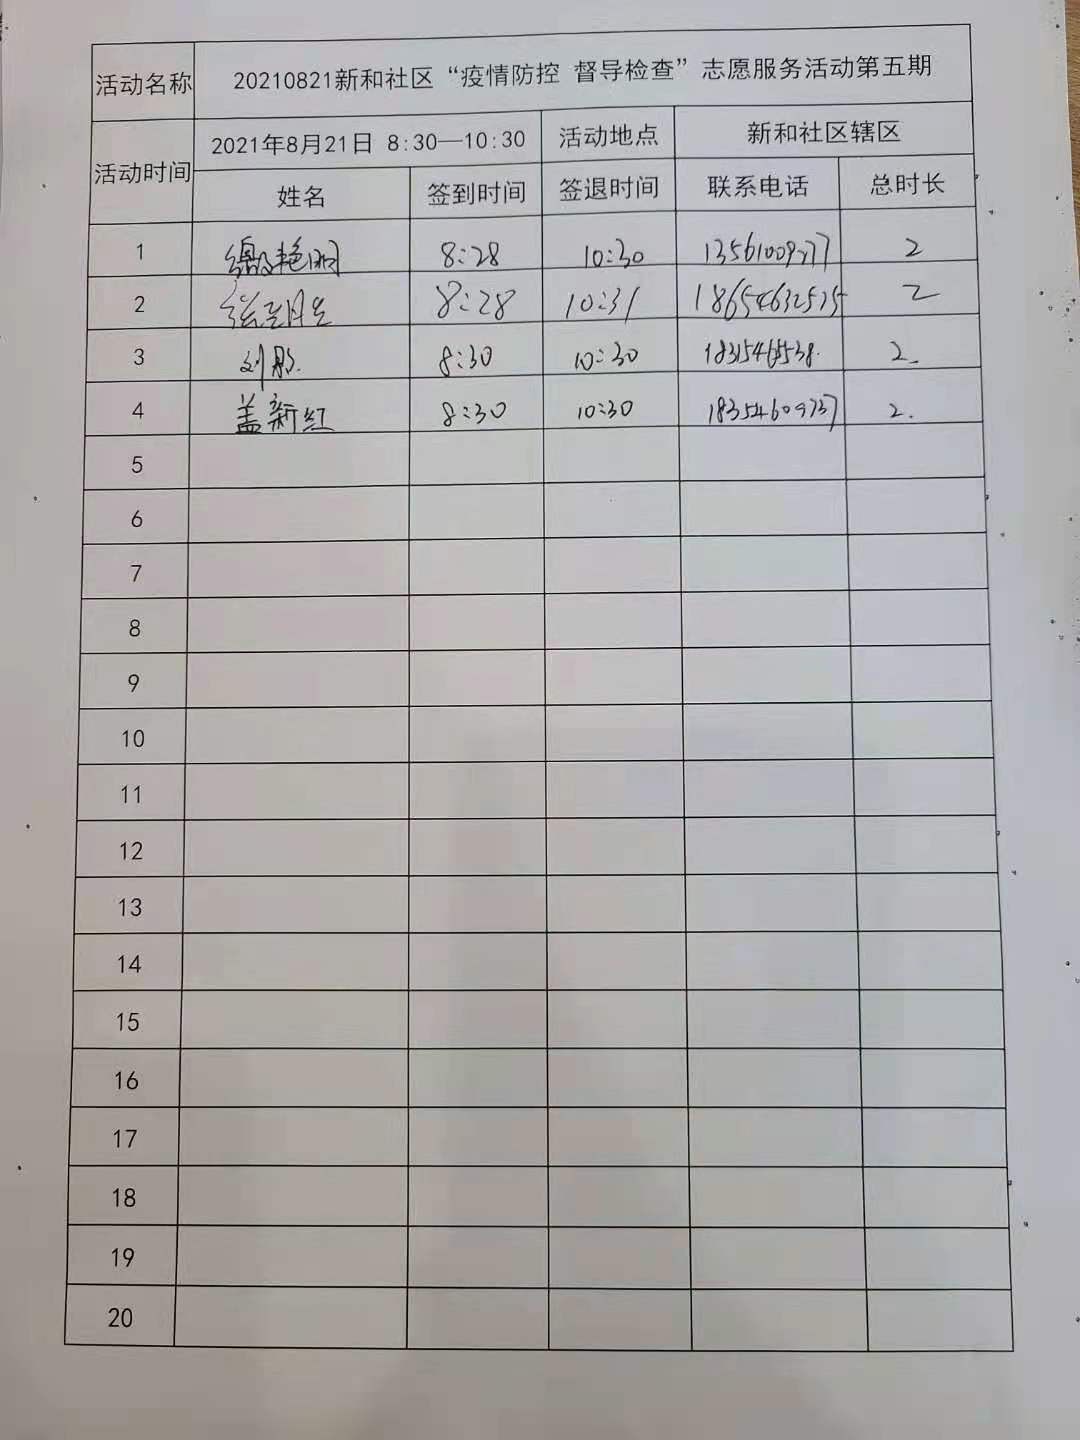 活动名称 20210821新和社区“疫情防控 督导检查”志愿服务活动第五期
活动时间 2021年8月21日 8:30—10:30 活动地点 新和社区辖区
姓名 签到时间 签退时间 联系电话 总时长
1 8:28 10:30 2
2 8:28 10:31 18654632575 2
3 刘彤 8:30 10:30 2
4 盖新红 8:30 10:30 18354609737 2
5
6
7
8
9
10
11
12
13
14
15
16
17
18
19
20